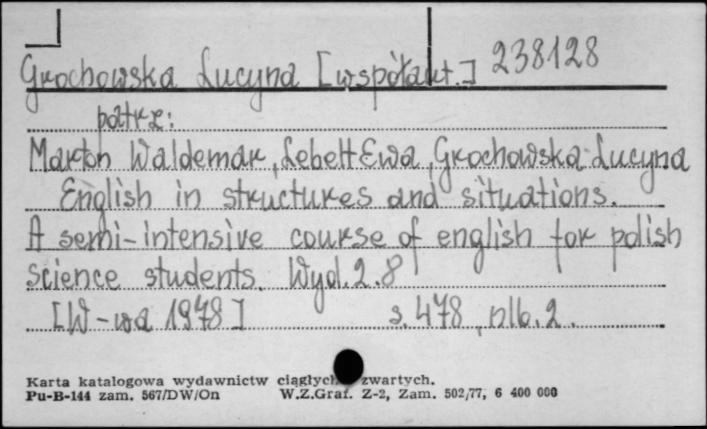 Grochowska Lucyna [współaut.] 238128
patrz:
Marton Waldemar, Lebelt Ewa, Grochowska Lucyna
English in structures and situations.
A semi-intensive course of english for polish
science students. Wyd. 2. 8°
[W-wa 1978] s. 478, nlb. 2.
Karta katalogowa wydawnictw ciągłych zwartych.
Pu-B-144 zam. 567/DW/On W.Z.Graf. Z-2, Zam. 502/77, 6 400 000